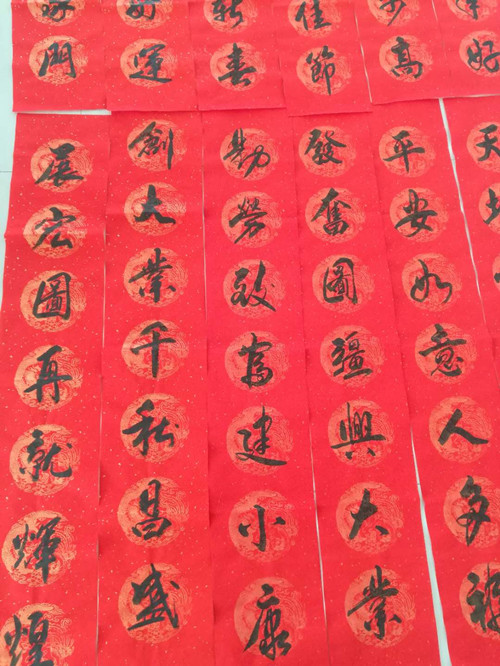 好
高
佳節
新春
運
門
天
平安如意人多福
發奮圖彊興大業
勤勞致富建小康
創大業千秋昌盛
展宏圖再就輝煌